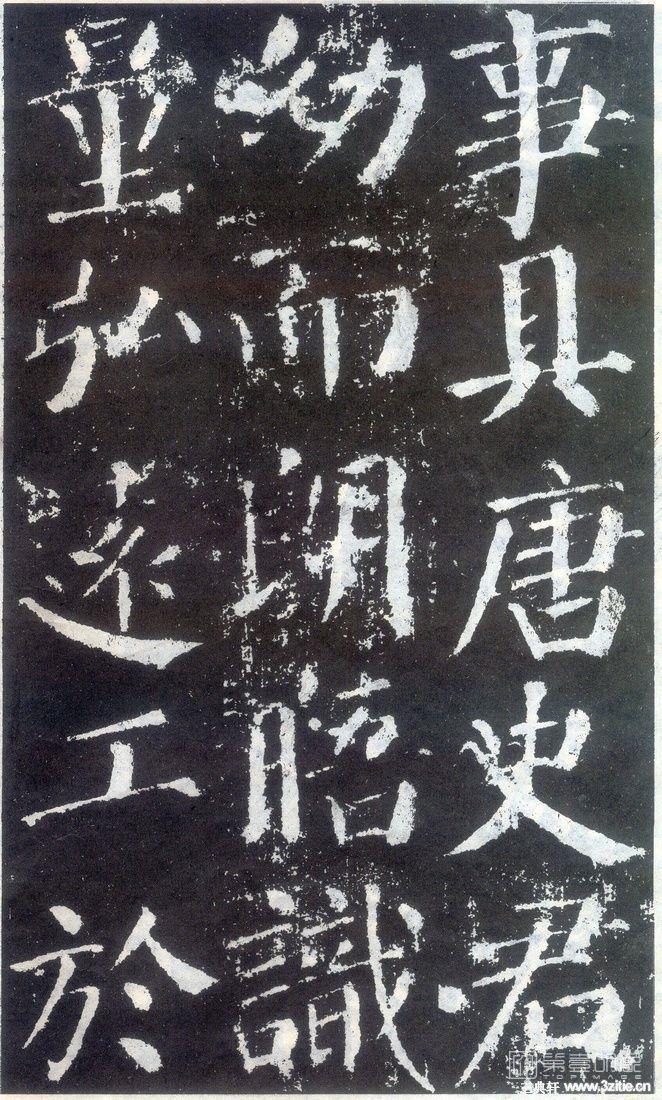 事具唐史君
幼而朗晤識
量弘遠工於
www.3zitie.cn